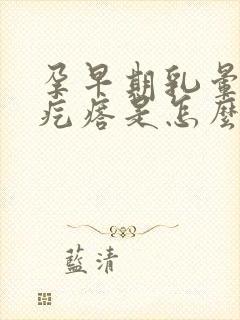 孕早期乳暈
疙瘩是怎麼
藍清